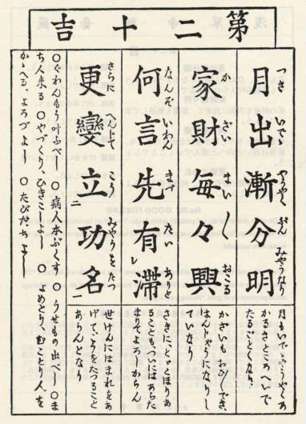 第二十吉
月出漸分明
つき いで やうやく ぶん みやうなり
月もいで、やうやくあ
かるきところへいで
たるごとくなり、
家財毎々興
か ざい まい〱 おこる
かざいも、おゝくでき、
はんじやうになりし
ていなり
何言先有滞レ
なんぞ いわん まづ たい ありと
さきに、とゞこほりあ
ることも、つひにはあらた
まりてよろしからん
更變立二功名一
さらに へんじて こう みやうをたつ
せけんにほまれをあ
げて、いゑをたつること
あらんとなり
○ぐわんもう叶ふべし ○病人本ぶくす ○うせもの出べし ○ま
ち人来る ○やづくり、ひきこしよし ○よめとり、むことり、人を
かゝへる、よろづよし ○たびだちよし